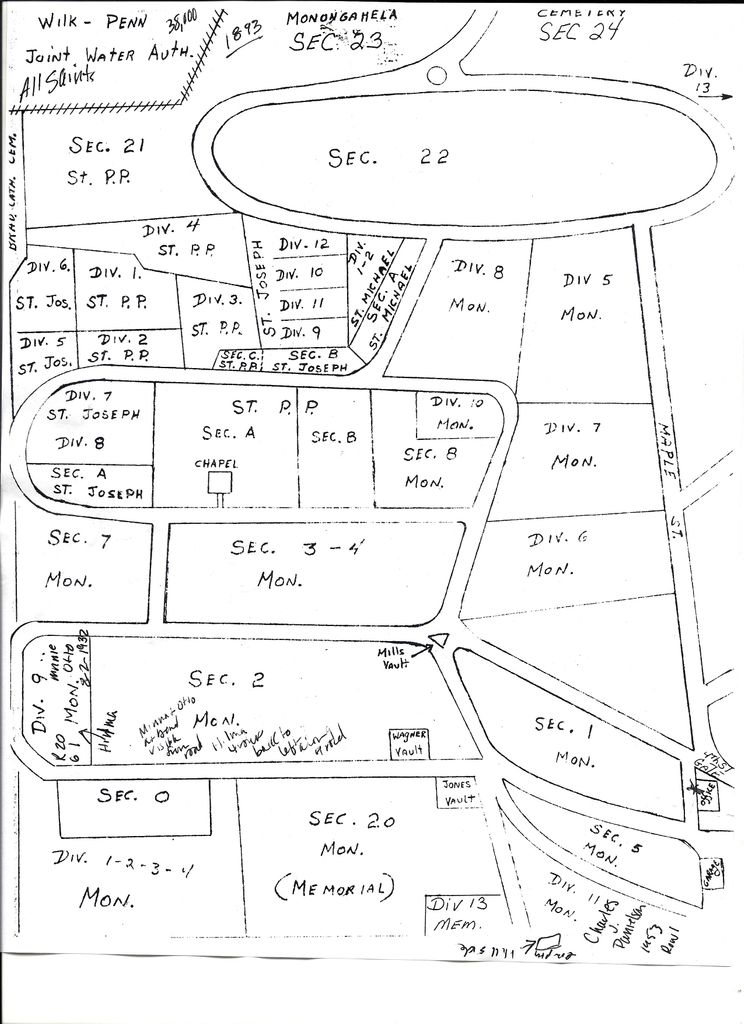 Wilk - Penn
38,000
Joint Water Auth.
All Saints
1893
Monongahela
Sec. 23
Cemetery
Sec 24
Div.
13
Sec. 21
St. P.P.
Sec. 22
Div. 4
St. P.P.
Div. 6.
St. Jos.
Div. 1.
St. P.P.
Div. 3.
St. P.P.
Div. 5
St. Jos.
Div. 2
St. P.P.
St. Joseph
Div. 12
Div. 10
Div. 11
Div. 9
Div.
1-2
St. Michael
Sec. A
St. Michael
Sec. C.
St. P.P.
Sec. B
St. Joseph
Div. 8
Mon.
Div 5
Mon.
Div. 7
St. Joseph
Div. 8
Sec. A
St. Joseph
St. P. P.
Sec. A
Chapel
Sec. B
Div. 10
Mon.
Sec. 8
Mon.
Div. 7
Mon.
Maple St.
Sec. 7
Mon.
Sec. 3-4
Mon.
Div. 6
Mon.
Mills
Vault
Div. 9
Mon.
Minnie Otto
8-2-1932
R20
61
Hilma
Sec. 2
Mon.
Minna + Otto
Hilma
4 rows
back to
left
Wagner
Vault
Sec. 1
Mon.
4th St
Gate
Office
Sec. 0
Div. 1-2-3-4
Mon.
Sec. 20
Mon.
(Memorial)
Jones
Vault
Sec. 5
Mon.
Garage
Div 13
Mem.
Div. 11
Mon.
Charles
J.
1953
Row 1
hill side